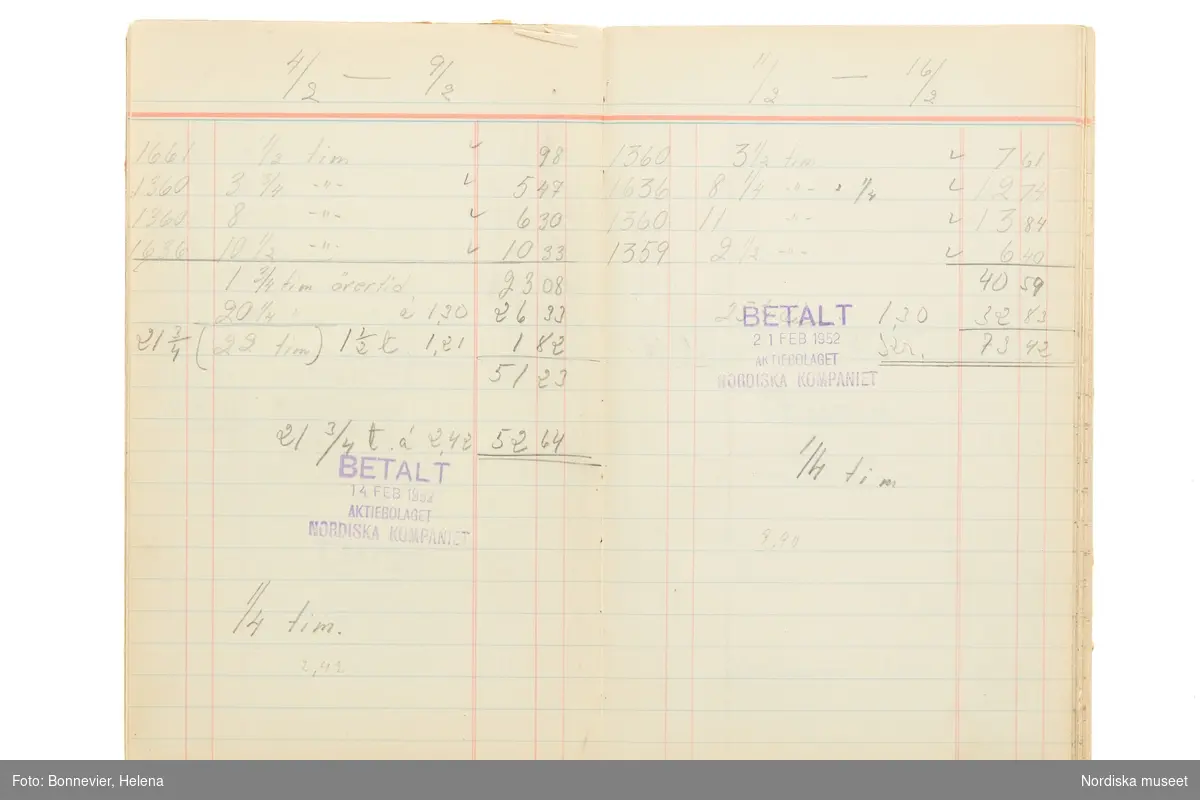 4/2 — 9/2
1661 1/2 tim ✓ 98
1360 3 3/4 -"- ✓ 5 47
1360 8 -"- ✓ 6 30
1636 10 1/2 -"- ✓ 10 33
1 3/4 tim övertid 23 08
20 1/4 " á 1,30 26 33
21 3/4 (22 tim) 1 1/2 t 1,21 1 82
51 23
21 3/4 t. á 2,42 52 64
BETALT
14 FEB 1952
AKTIEBOLAGET
NORDISKA KOMPANIET
1/4 tim.
2,42
11/2 — 16/2
1360 3 1/2 tim ✓ 7 61
1636 8 1/4 -"- 1/4 ✓ 12 74
1360 11 -"- ✓ 13 84
1359 2 1/2 -"- ✓ 6 40
40 59
1,30 32 83
Kr. 73 42
BETALT
21 FEB 1952
AKTIEBOLAGET
NORDISKA KOMPANIET
1/4 tim
Foto: Bonnevier, Helena
Nordiska museet